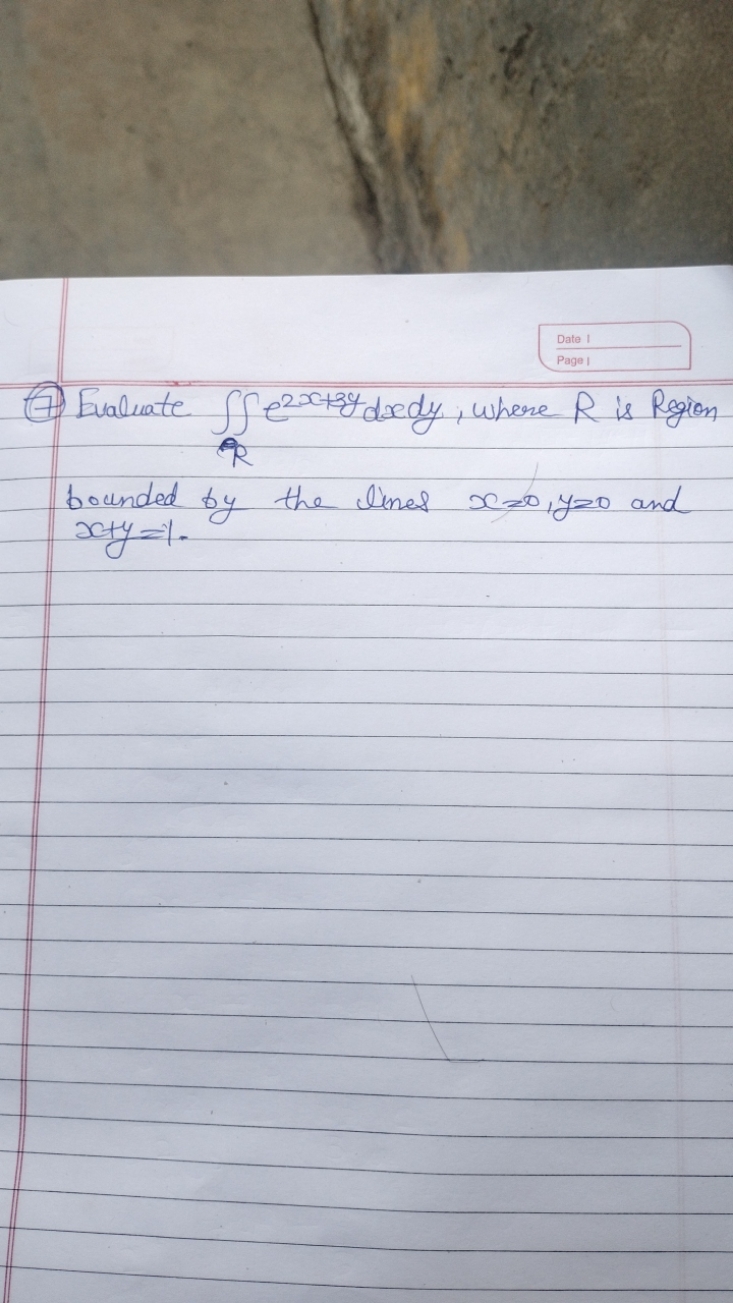 Date |
Page |
⑦ Evaluate ∬ e^{2x+3y} dx dy, where R is Region
R
bounded by the lines x=0, y=0 and
x+y=1.